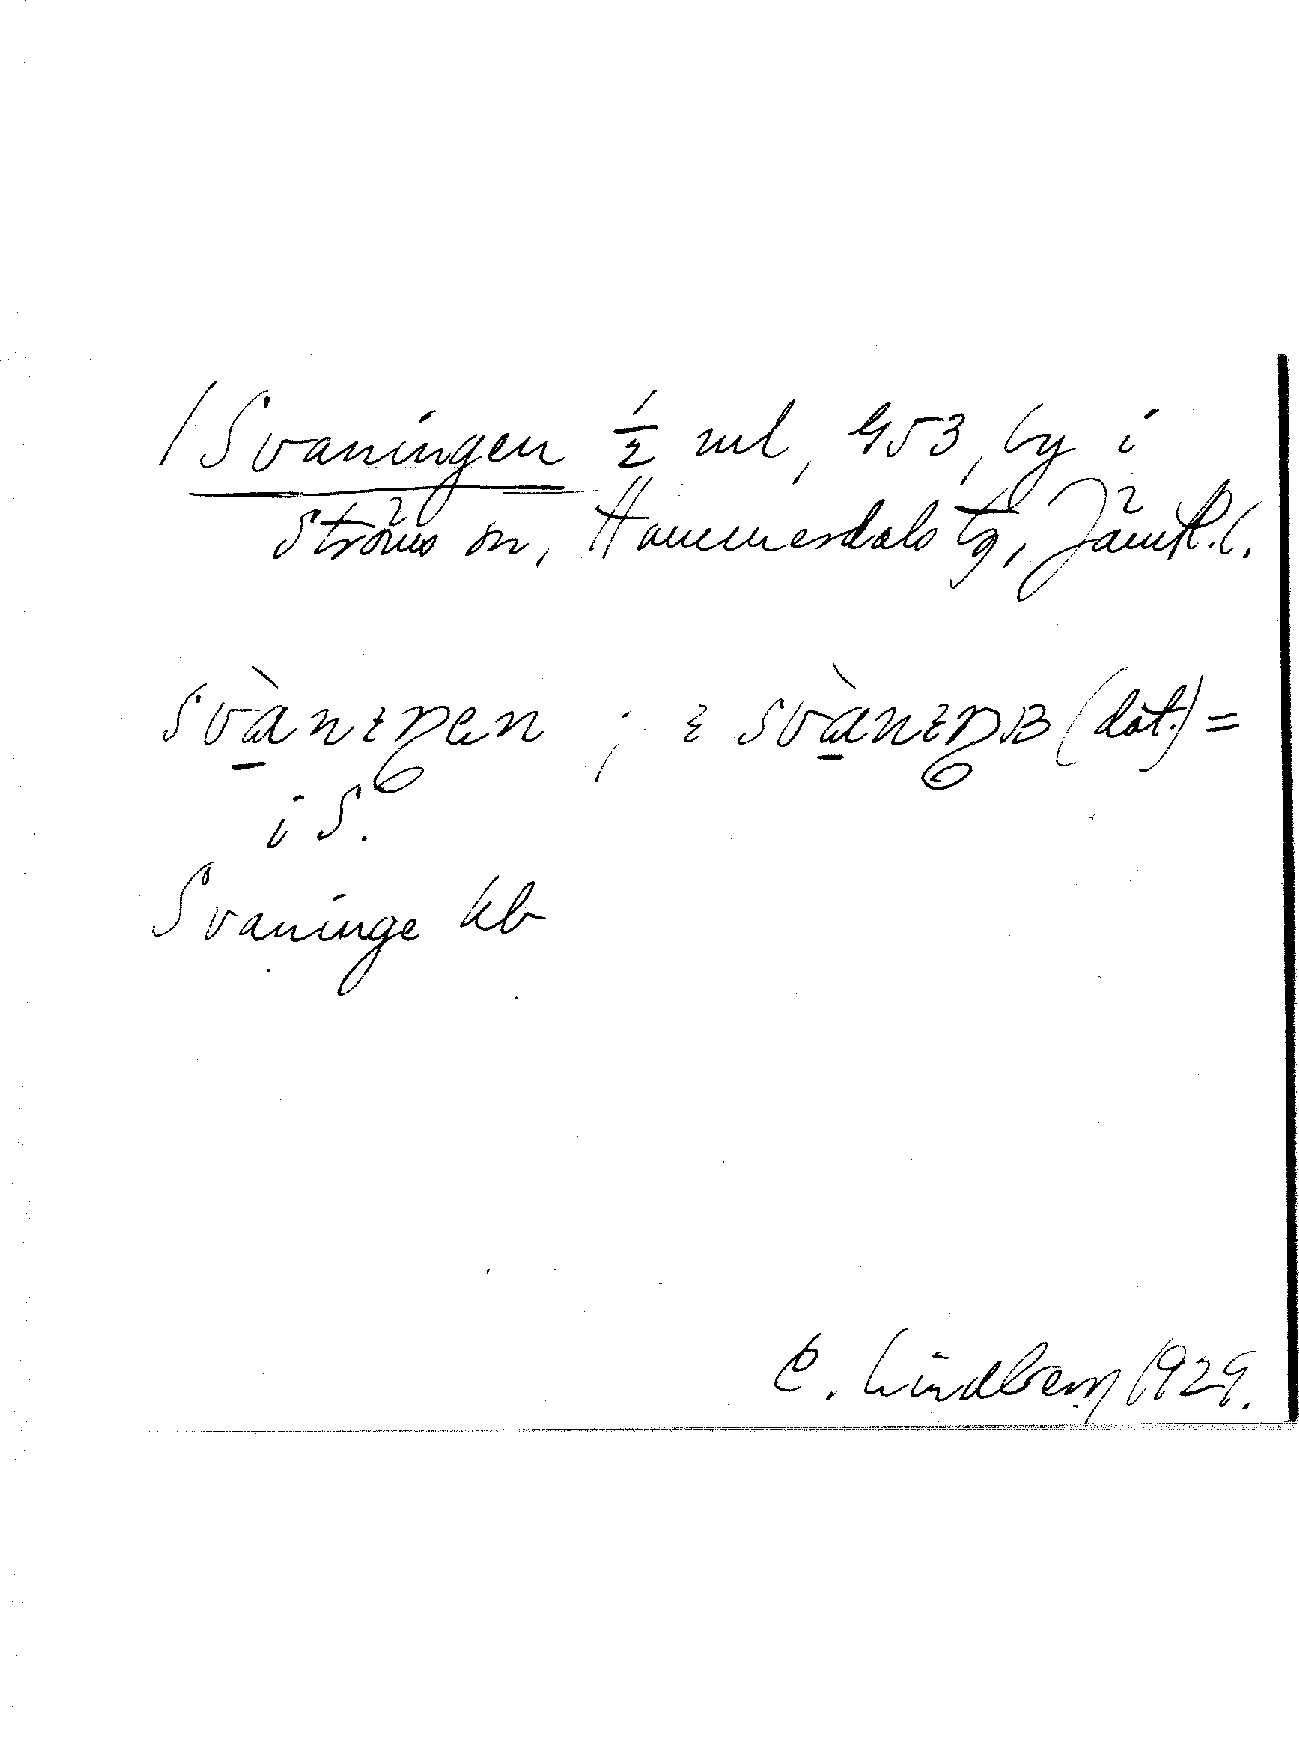 / Svaningen ½ ml, 953, by i
Ströms sn, Hammerdals tg, Jämtl. l.
svànıŋen ; ı svànıŋʙ (dat.) =
i S.
Svaninge kb
E. Lindberg 1929.